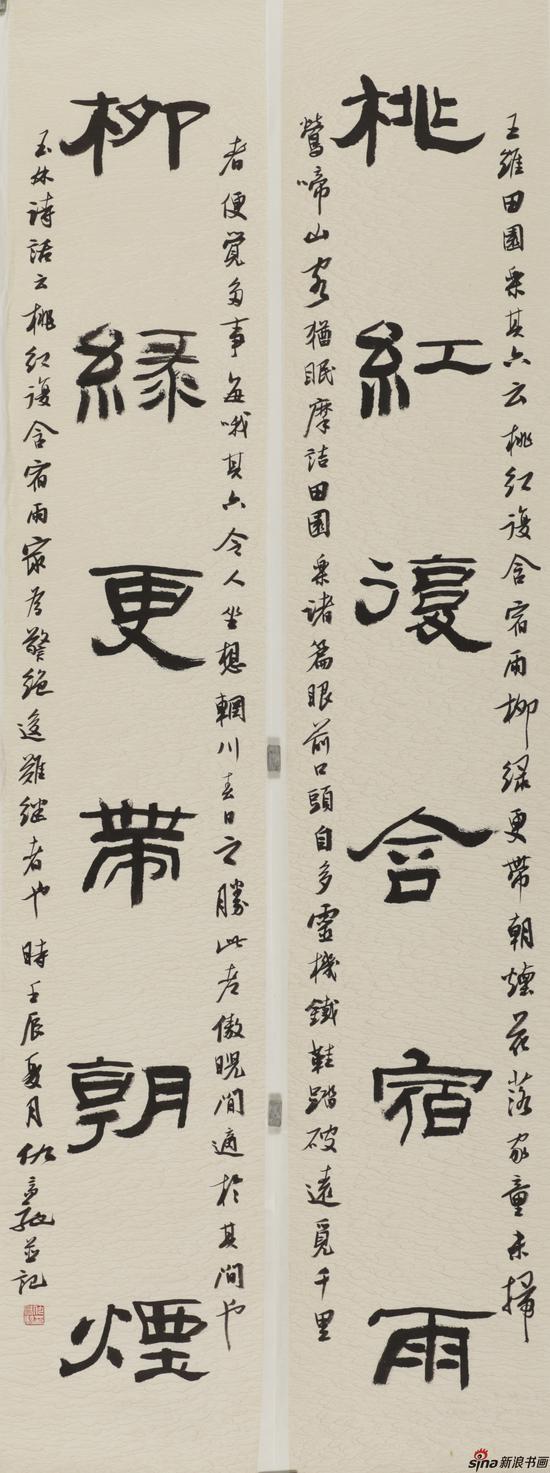 王維田園樂其六云桃紅復含宿雨柳緑更帶朝煙花落家童未掃
桃紅復含宿雨
鶯啼山客猶眠摩詰田園樂諸篇眼前口頭自多靈機鐵鞋踏破遠覓千里
者便覺多事每哦其六令人坐想輞川春日之勝此老傲睨閒適於其間也
柳緑更帶朝煙
玉林詩話云桃紅復含宿雨最為警絶後難繼者也 時壬辰夏月仇高馳並記
sina新浪书画